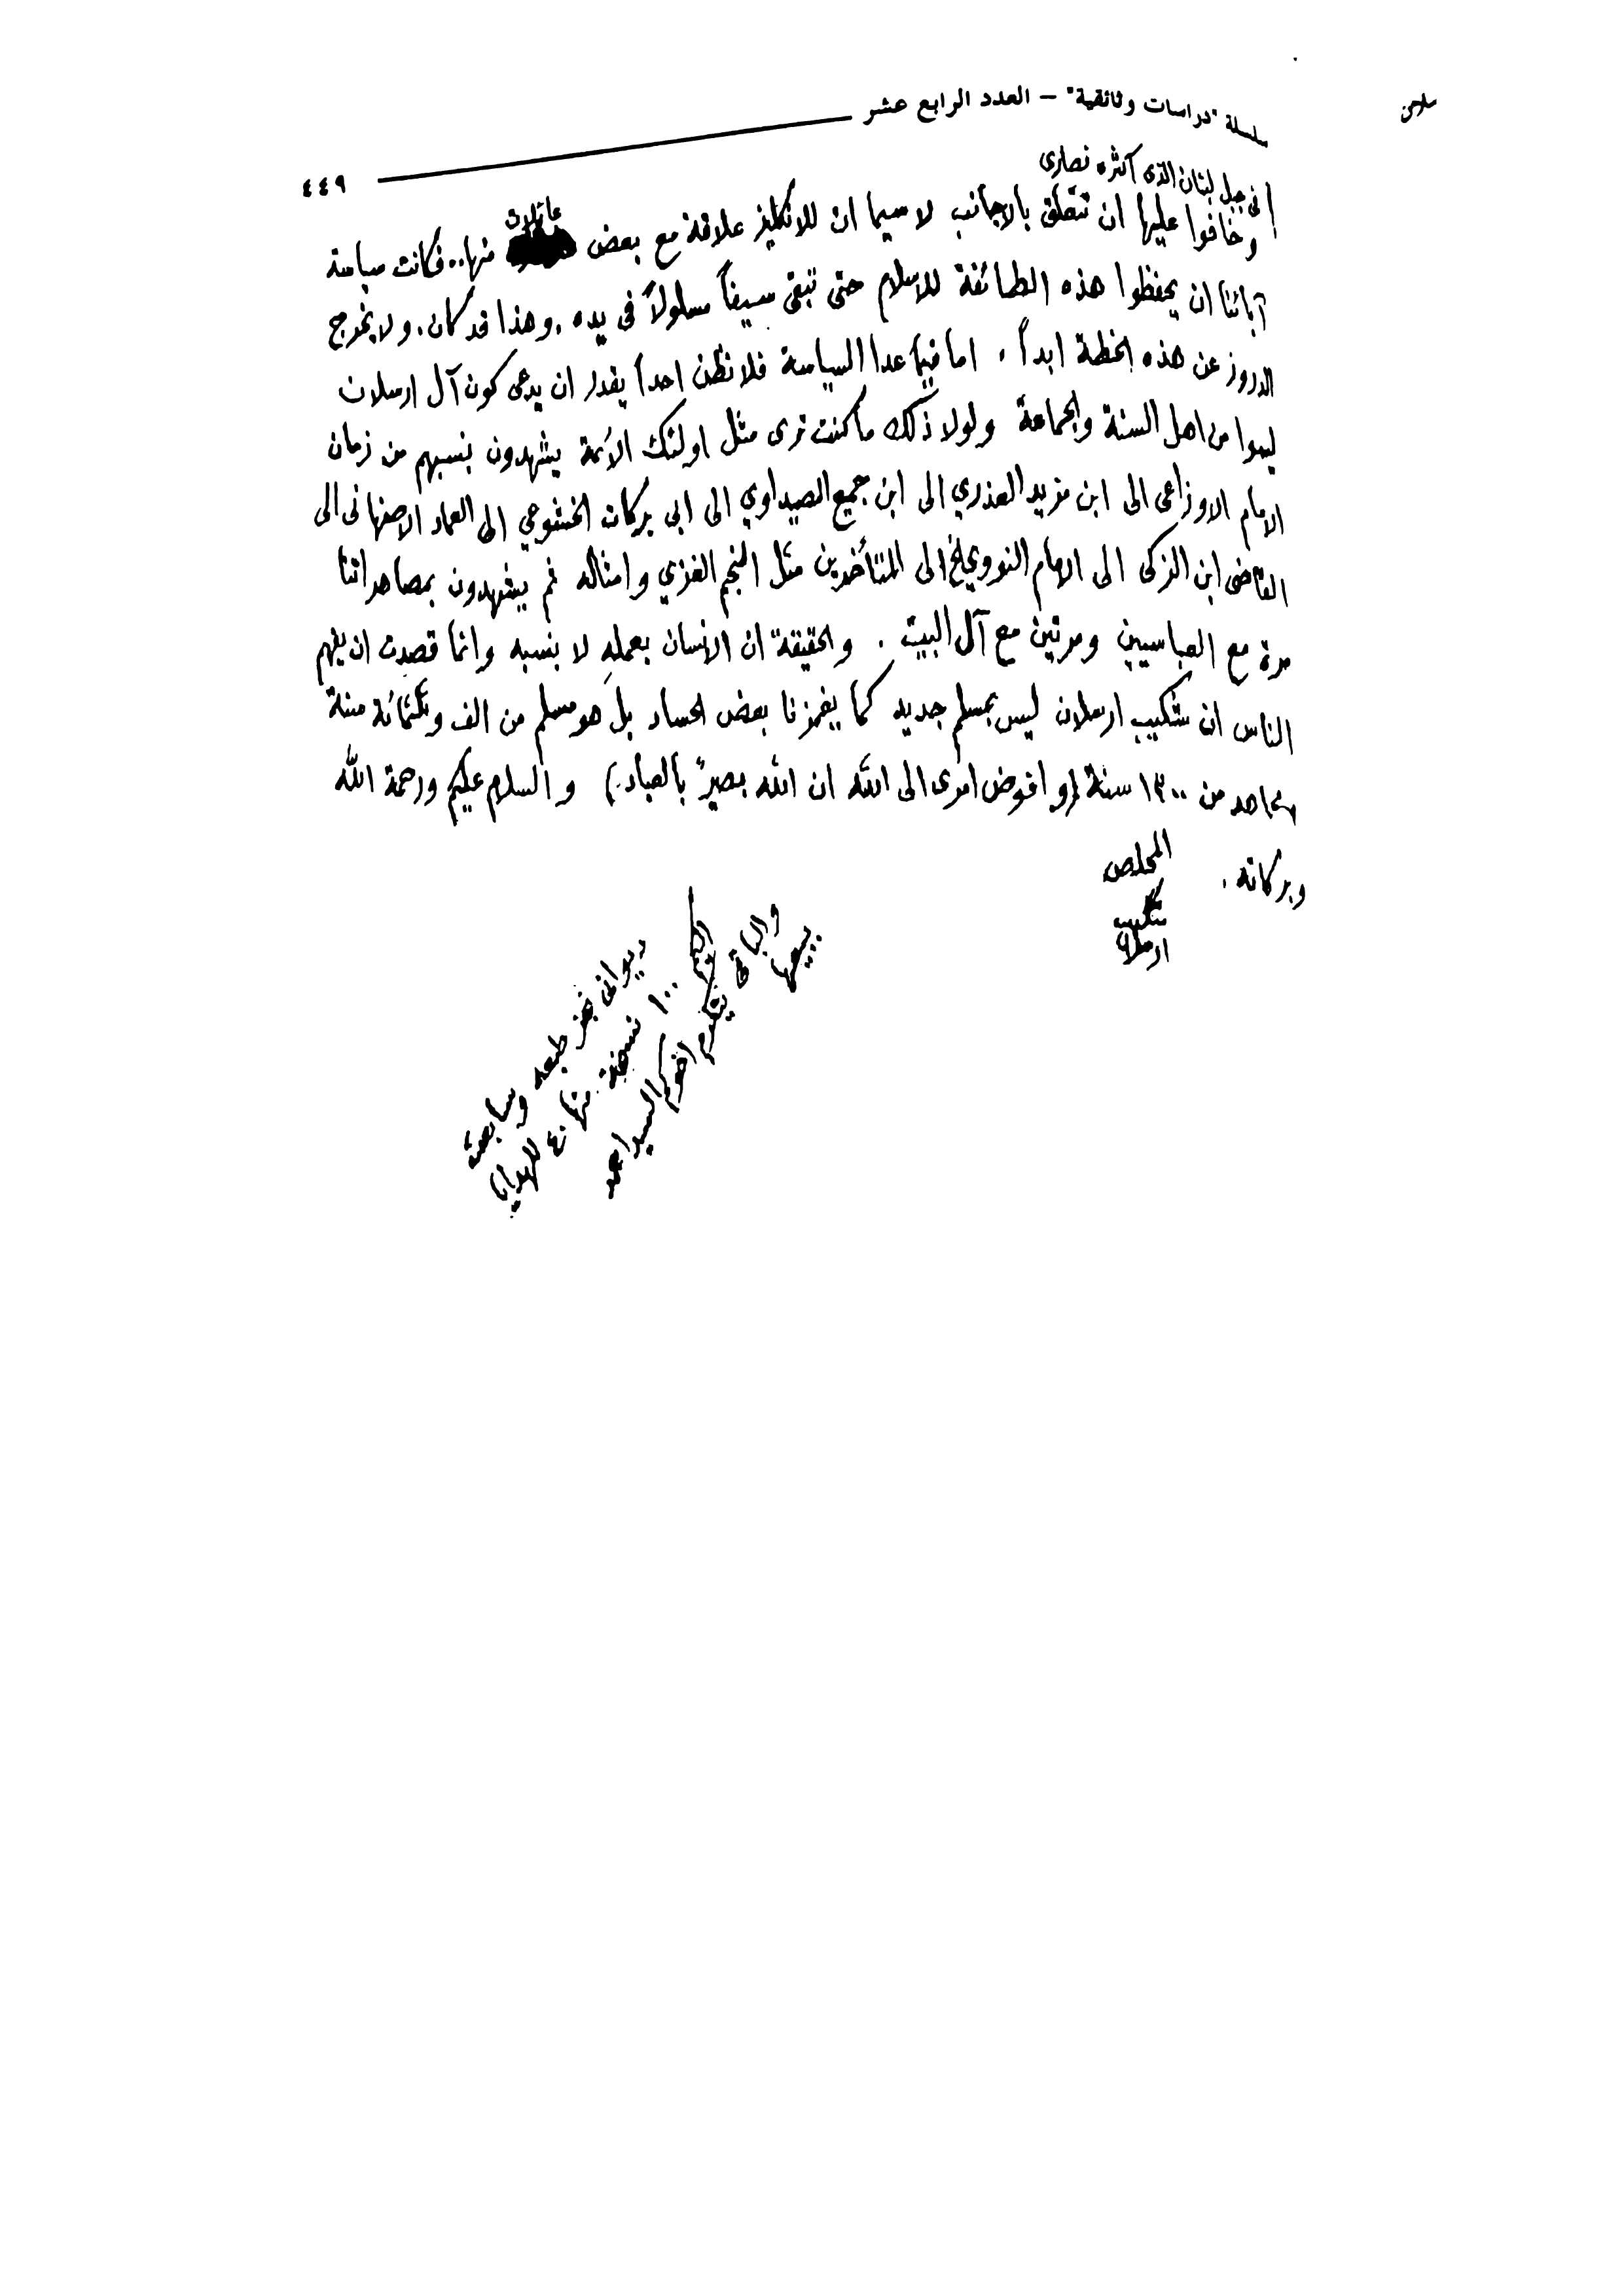 سلسلة "دراسات وثائقية" – العدد الرابع عشر
٤٤٩
ملاحق
في جبل لبنان الذي اكثره نصارى
وخافوا عليها ان تتعلق بالاجانب لاسيما ان للانكليز علاقة مع بعض عائلات منها.. فكانت سياسة
آبائنا ان يحفظوا هذه الطائفة للاسلام حتى تبقى سيفاً مسلولاً في يده . وهذا قد كان . ولا يخرج
الدروز عن هذه الخطة ابداً . اما فيما عدا السياسة فلا نظن احداً يقدر ان يدعى كون آل ارسلان
ليسوا من اهل السنة والجماعة ولولا ذلك ما كنت ترى مثل اولئك الأئمة يشهدون بنسبهم من زمان
الامام الاوزاعى الى ابن مزيد العذري الى ابن جميع الصيداوي الى ابى بركات الخشوعي الى العماد الاصفهانى الى
القاضى ابن الزكى الى الامام النووي الخ الى المتأخرين مثل النجم الغزي وامثاله ثم يشهدون بمصاهراتنا
مرة مع العباسيين ومرتين مع آل البيت . والحقيقة ان الانسان بعمله لا بنسبه وانما قصدت ان يفهم
الناس ان شكيب ارسلان ليس بمسلم جديد كما يغمزنا بعض الحساد بل هو مسلم من الف وثلثمائة سنة
مجاهد من ١٣٠٠ سنة (وافوض امرى الى الله ان الله بصيرٌ بالعباد) والسلام عليكم ورحمة الله
وبركاته .
المخلص
شكيب
ارسلان
ديوانى نجز طبعه وسابعث
اليكم ١٠٠ نسخة منها ٤٠ للهدايا
والباقى يتكرم اخوكم السيد احمد
ببيعها